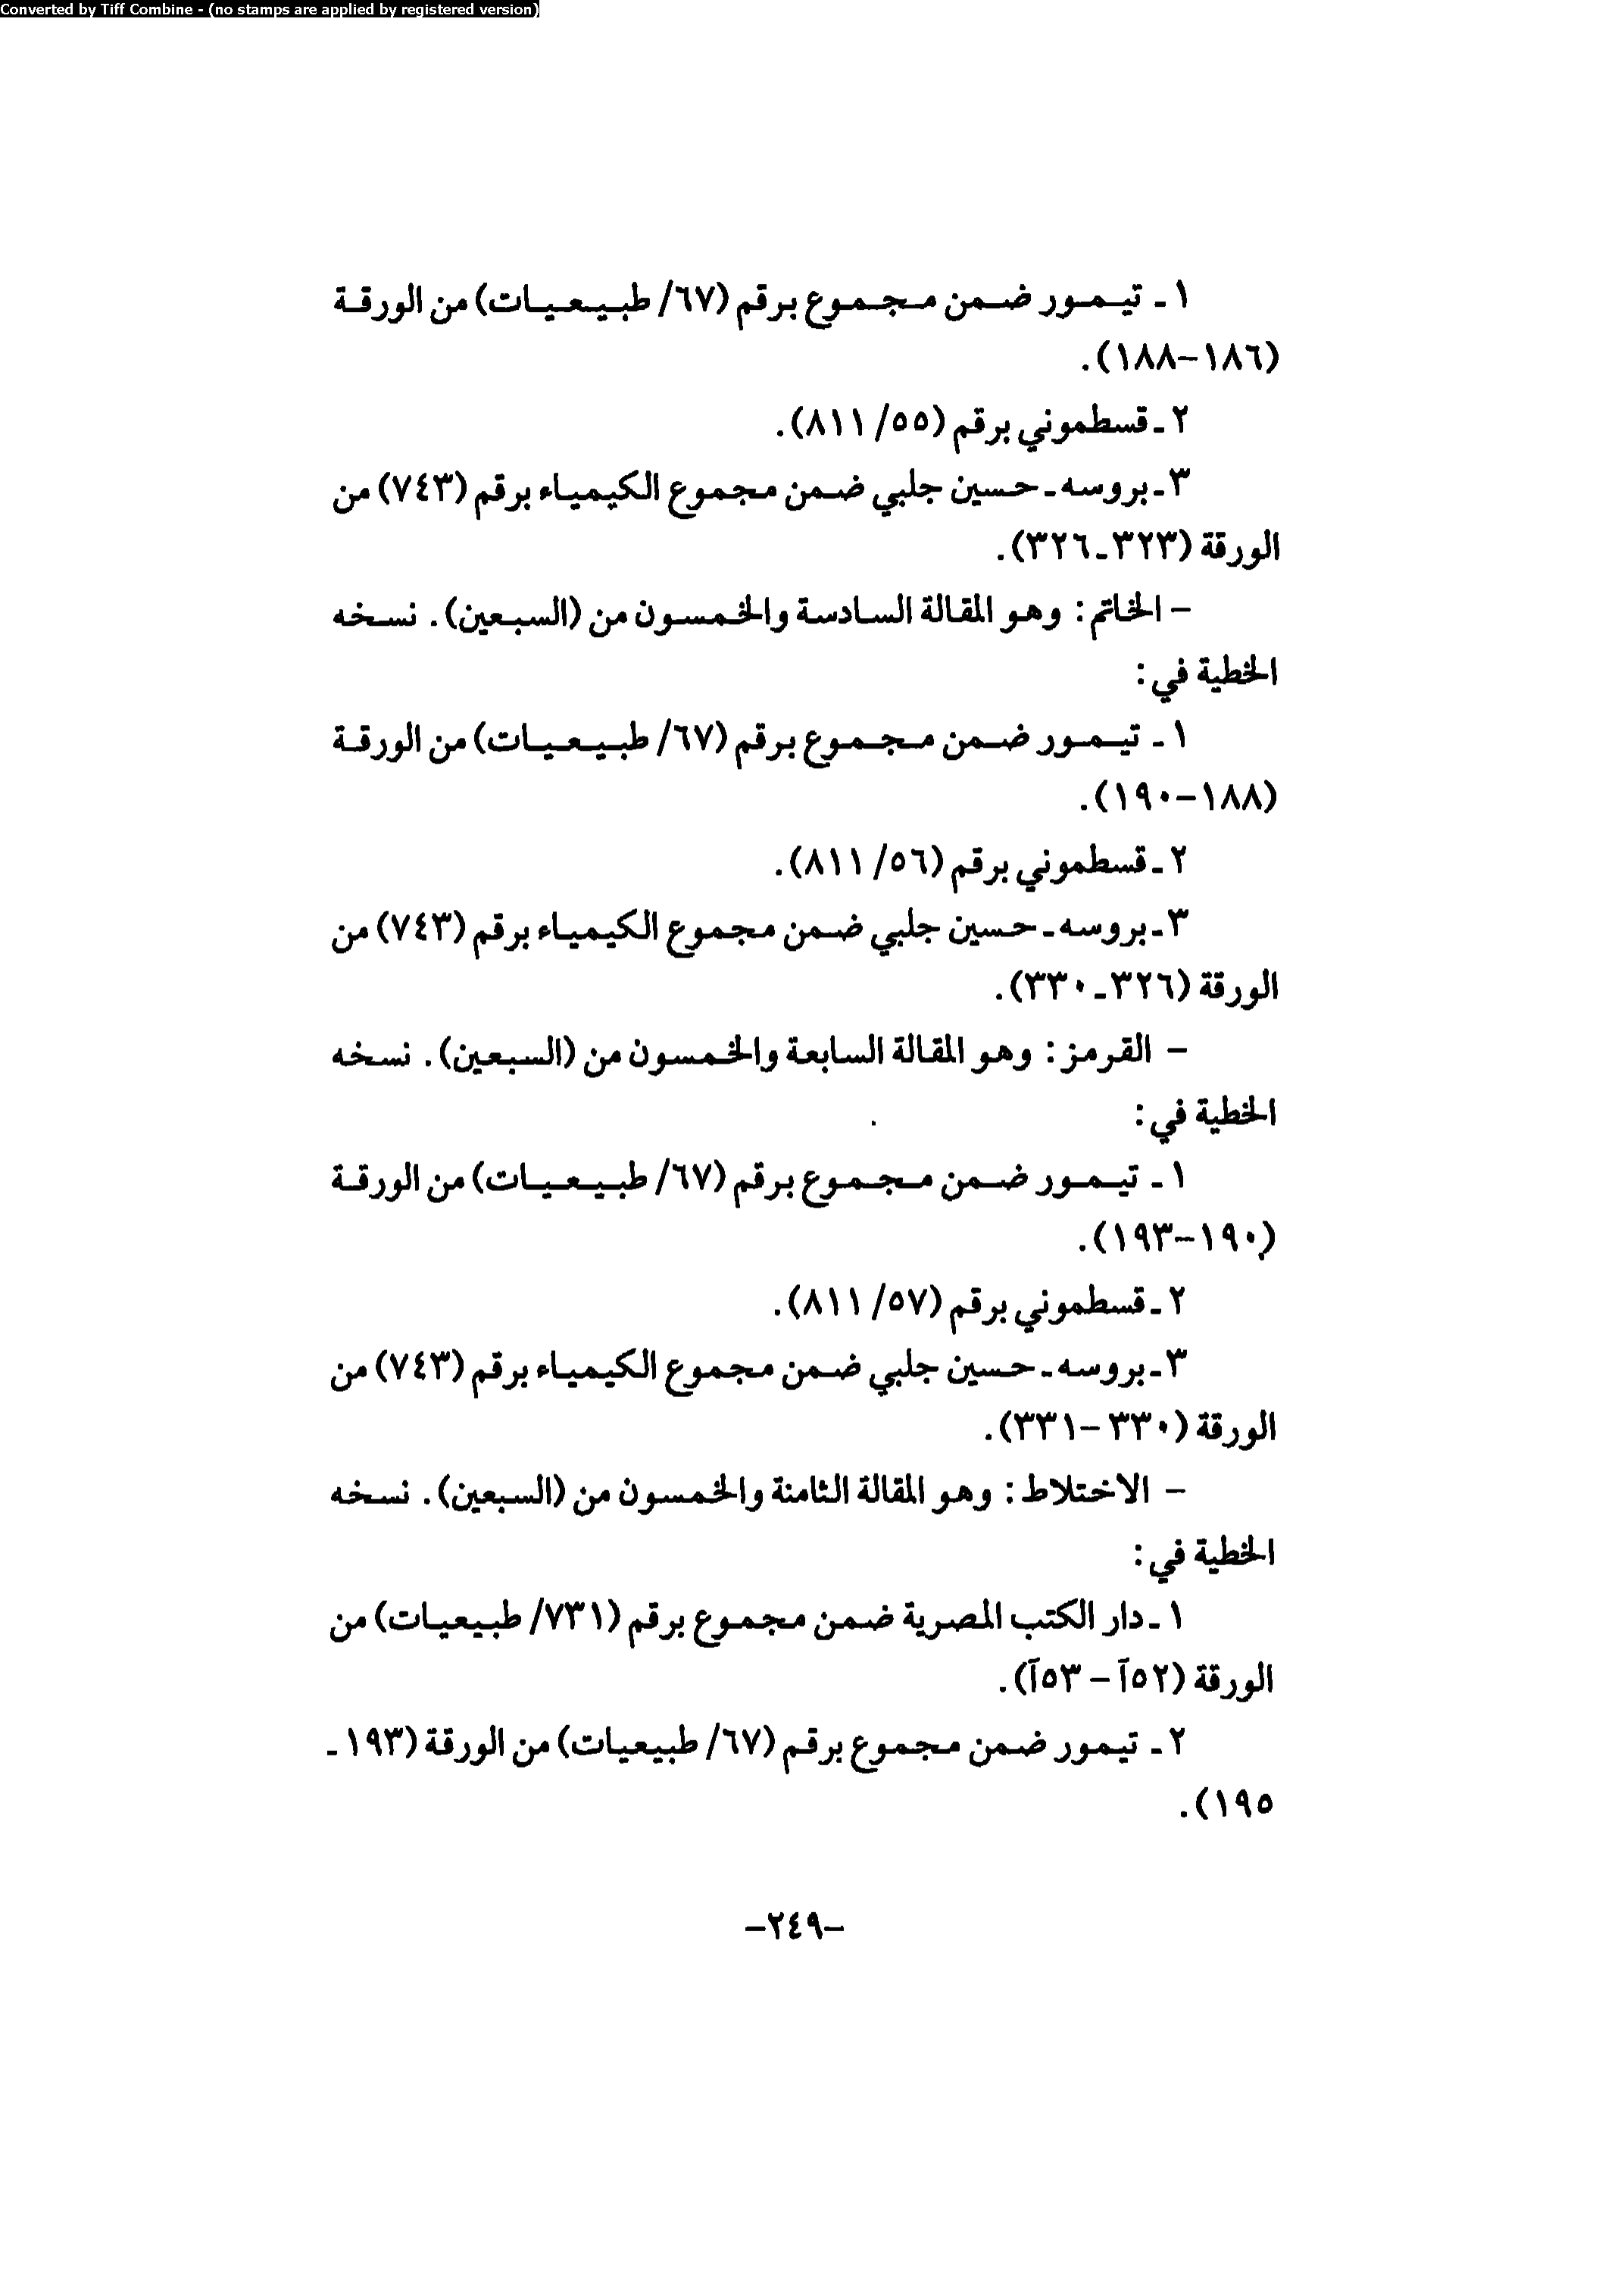 Converted by Tiff Combine - (no stamps are applied by registered version)
١ ـ تيمور ضمن مجموع برقم (٦٧/ طبيعيات) من الورقة
(١٨٦-١٨٨).
٢ ـ قسطموني برقم (٥٥/ ٨١١).
٣ ـ بروسه ـ حسين جلبي ضمن مجموع الكيمياء برقم (٧٤٣) من
الورقة (٣٢٣ـ٣٢٦).
- الخاتم: وهو المقالة السادسة والخمسون من (السبعين). نسخه
الخطية في:
١ ـ تيمور ضمن مجموع برقم (٦٧/ طبيعيات) من الورقة
(١٨٨-١٩٠).
٢ ـ قسطموني برقم (٥٦/ ٨١١).
٣ ـ بروسه ـ حسين جلبي ضمن مجموع الكيمياء برقم (٧٤٣) من
الورقة (٣٢٦ـ٣٣٠).
- القرمز: وهو المقالة السابعة والخمسون من (السبعين). نسخه
الخطية في:
١ ـ تيمور ضمن مجموع برقم (٦٧/ طبيعيات) من الورقة
(١٩٠-١٩٣).
٢ ـ قسطموني برقم (٥٧/ ٨١١).
٣ ـ بروسه ـ حسين جلبي ضمن مجموع الكيمياء برقم (٧٤٣) من
الورقة (٣٣٠-٣٣١).
- الاختلاط: وهو المقالة الثامنة والخمسون من (السبعين). نسخه
الخطية في:
١ ـ دار الكتب المصرية ضمن مجموع برقم (٧٣١/ طبيعيات) من
الورقة (٥٢آ - ٥٣آ).
٢ ـ تيمور ضمن مجموع برقم (٦٧/ طبيعيات) من الورقة (١٩٣ ـ
١٩٥).
-٢٤٩-